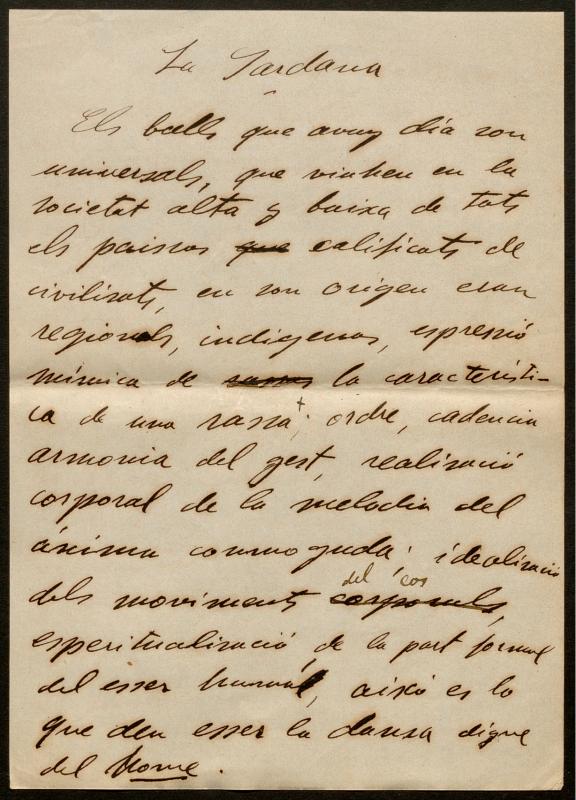 La Sardana
Els balls que avuy día son
universals, que viuhen en la
societat alta y baixa de tots
els paissos que calificats de
civilisats, en son origen eran
regionals, indigenas, espressió
mímica de rassas la característi-
ca de una rassa; ordre, cadencia
armonia del gest, realisació
corporal de la melodia del
ánima conmoguda; idealisació
dels moviments corporals, del cos
esperitualisació, de la part formal
del esser humá, aixó es lo
que deu esser la dansa digne
del home.